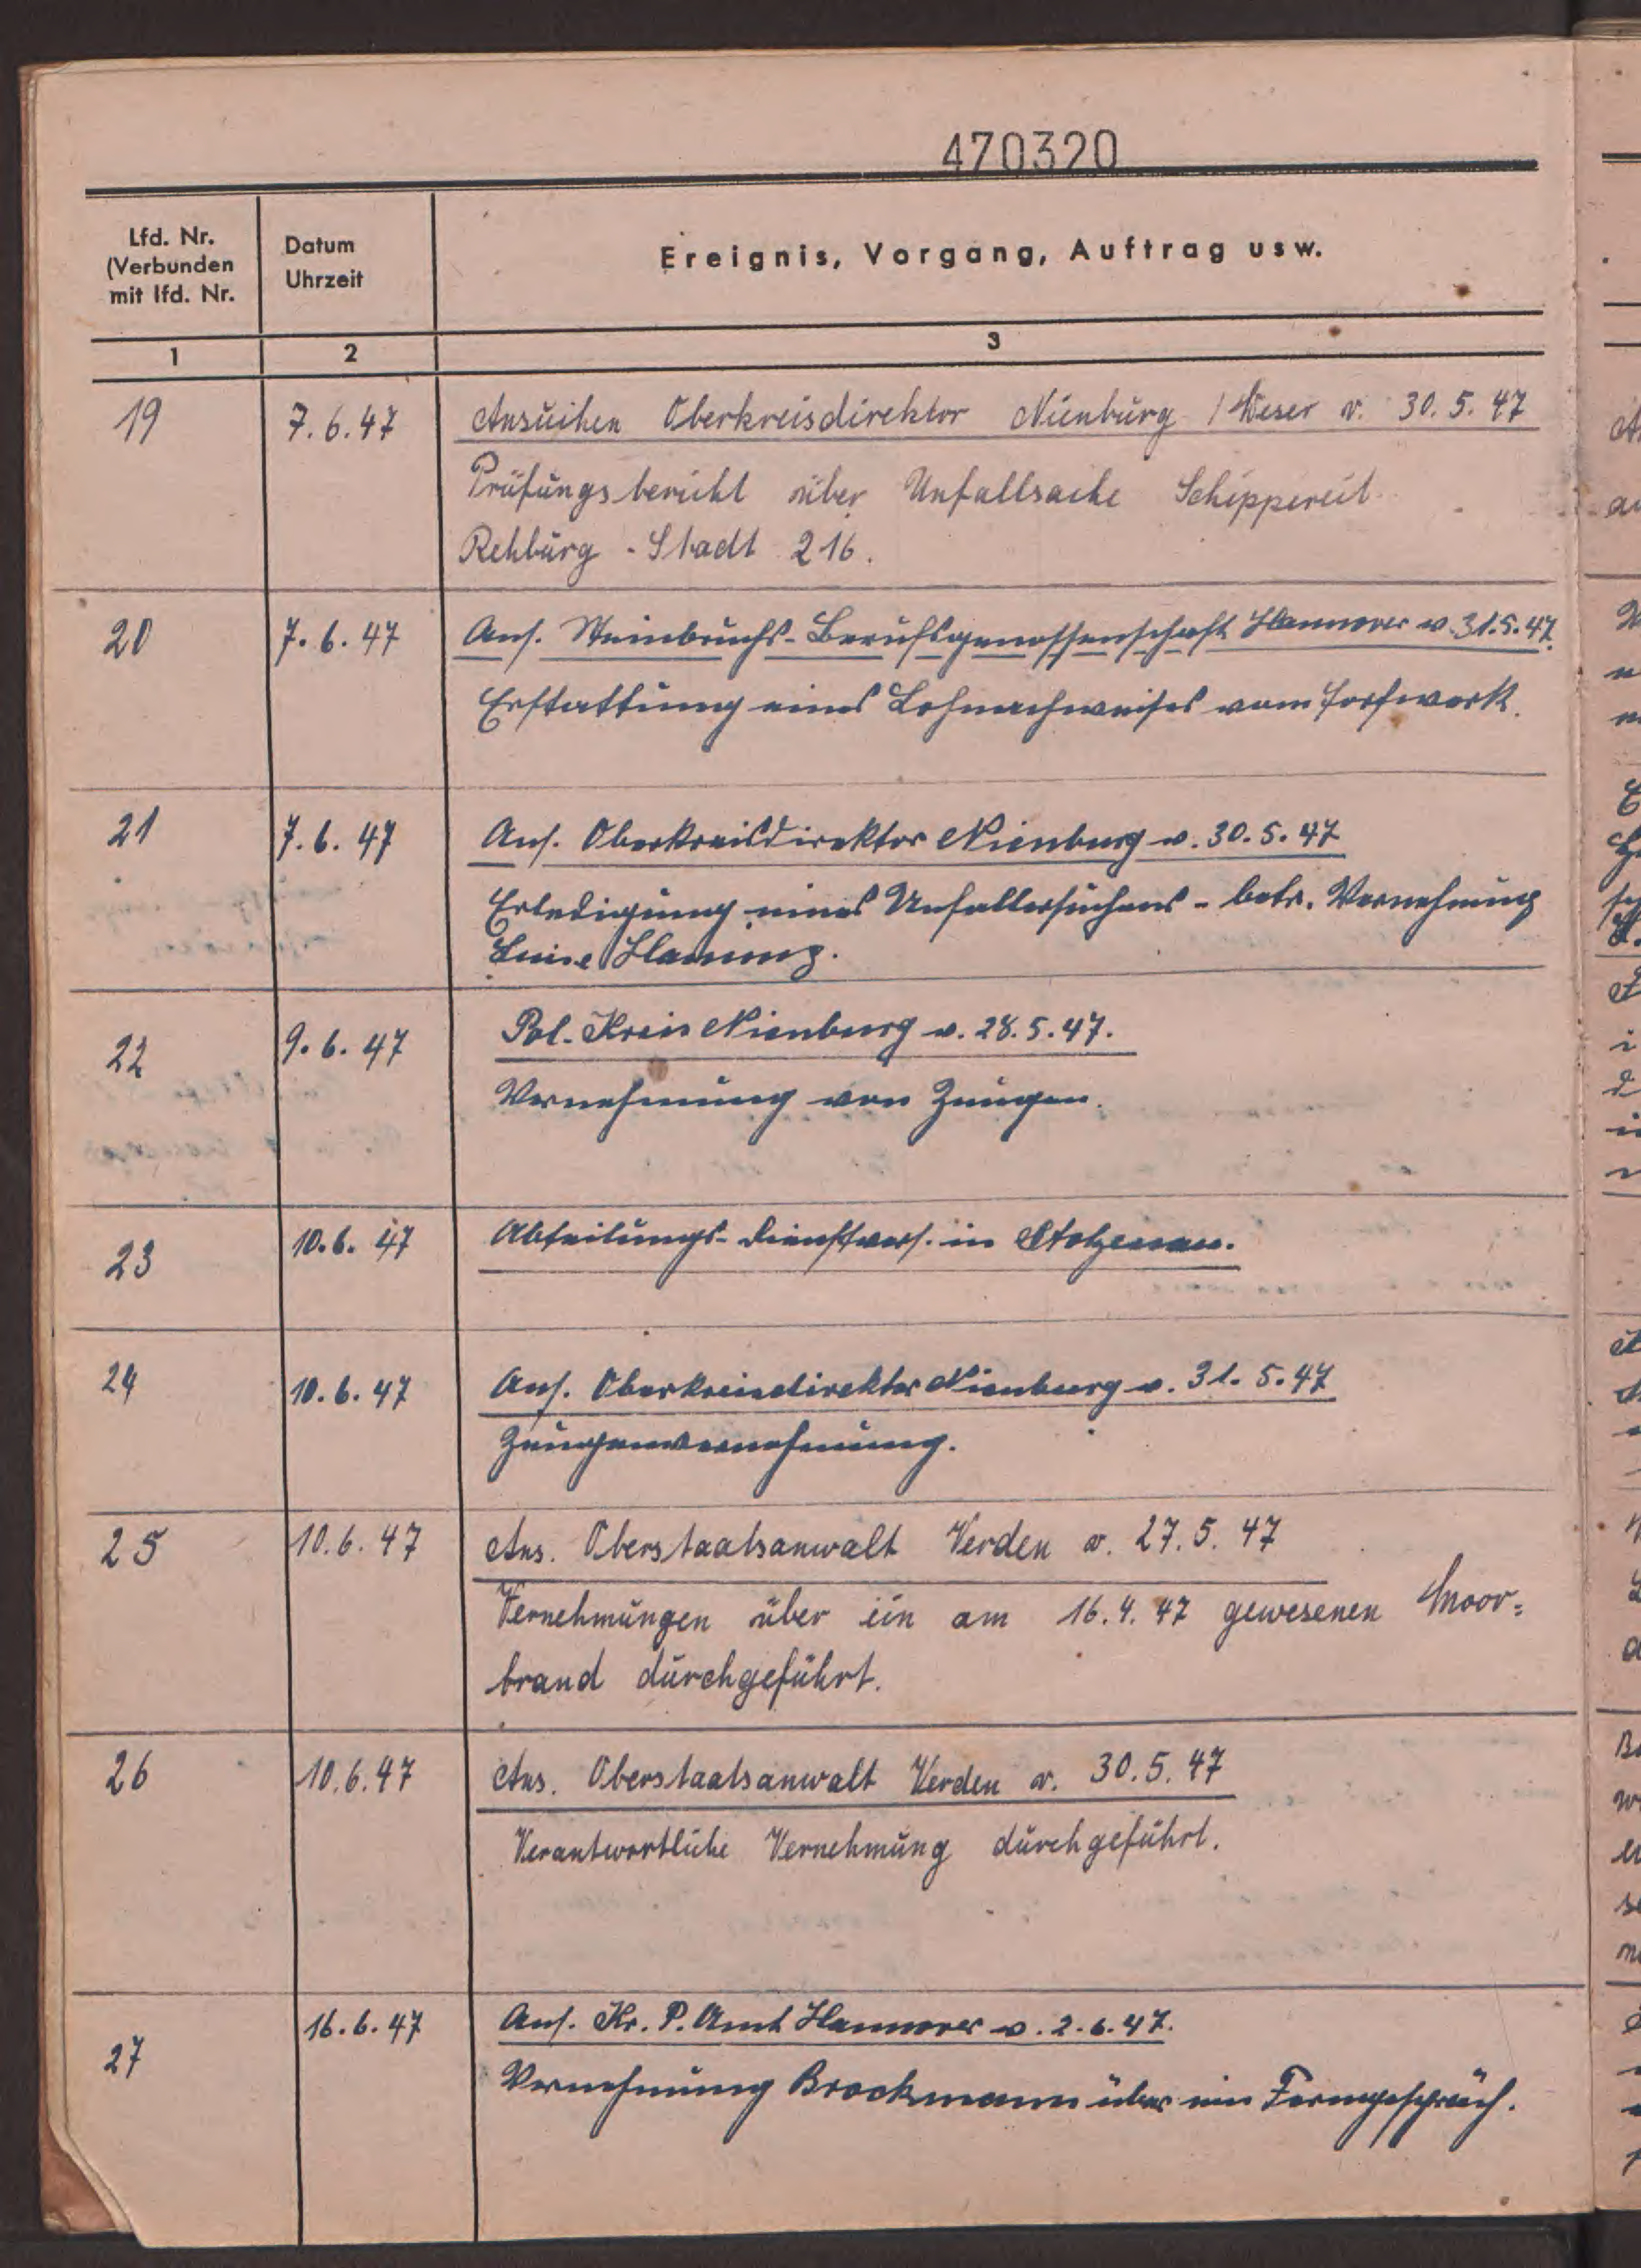 470320
Lfd. Nr.
(Verbunden
mit lfd. Nr.
Datum
Uhrzeit
Ereignis, Vorgang, Auftrag usw.
1 2 3
19 7.6.47 Ansuchen Oberkreisdirektor Nienburg / Weser v. 30.5.47
Prüfungsbericht über Unfallsache Schippereit
Rehburg - Stadt 216.
20 7.6.47 Ans. Steinbruchs-Berufsgenossenschaft Hannover v. 31.5.47.
Erstattung eines Lohnnachweises vom Torfwerk.
21 7.6.47 Ans. Oberkreisdirektor Nienburg v. 30.5.47
Erledigung eines Unfallersuchens - betr. Vernehmung
22 9.6.47 Pol.-Kreis Nienburg v. 28.5.47.
Vernehmung von Zeugen.
23 10.6.47 Abteilungs-Dienstvers. in Stolzenau.
24 10.6.47 Ans. Oberkreisdirektor Nienburg v. 31.5.47
Zeugenvernehmung.
25 10.6.47 Ans. Oberstaatsanwalt Verden v. 27.5.47
Vernehmungen über ein am 16.4.47 gewesenen Moor=
brand durchgeführt.
26 10.6.47 Ans. Oberstaatsanwalt Verden v. 30.5.47
Verantwortliche Vernehmung durchgeführt.
27 16.6.47 Ans. Kr. P. Amt Hannover v. 2.6.47.
Vernehmung Brockmann über ein Ferngespräch.